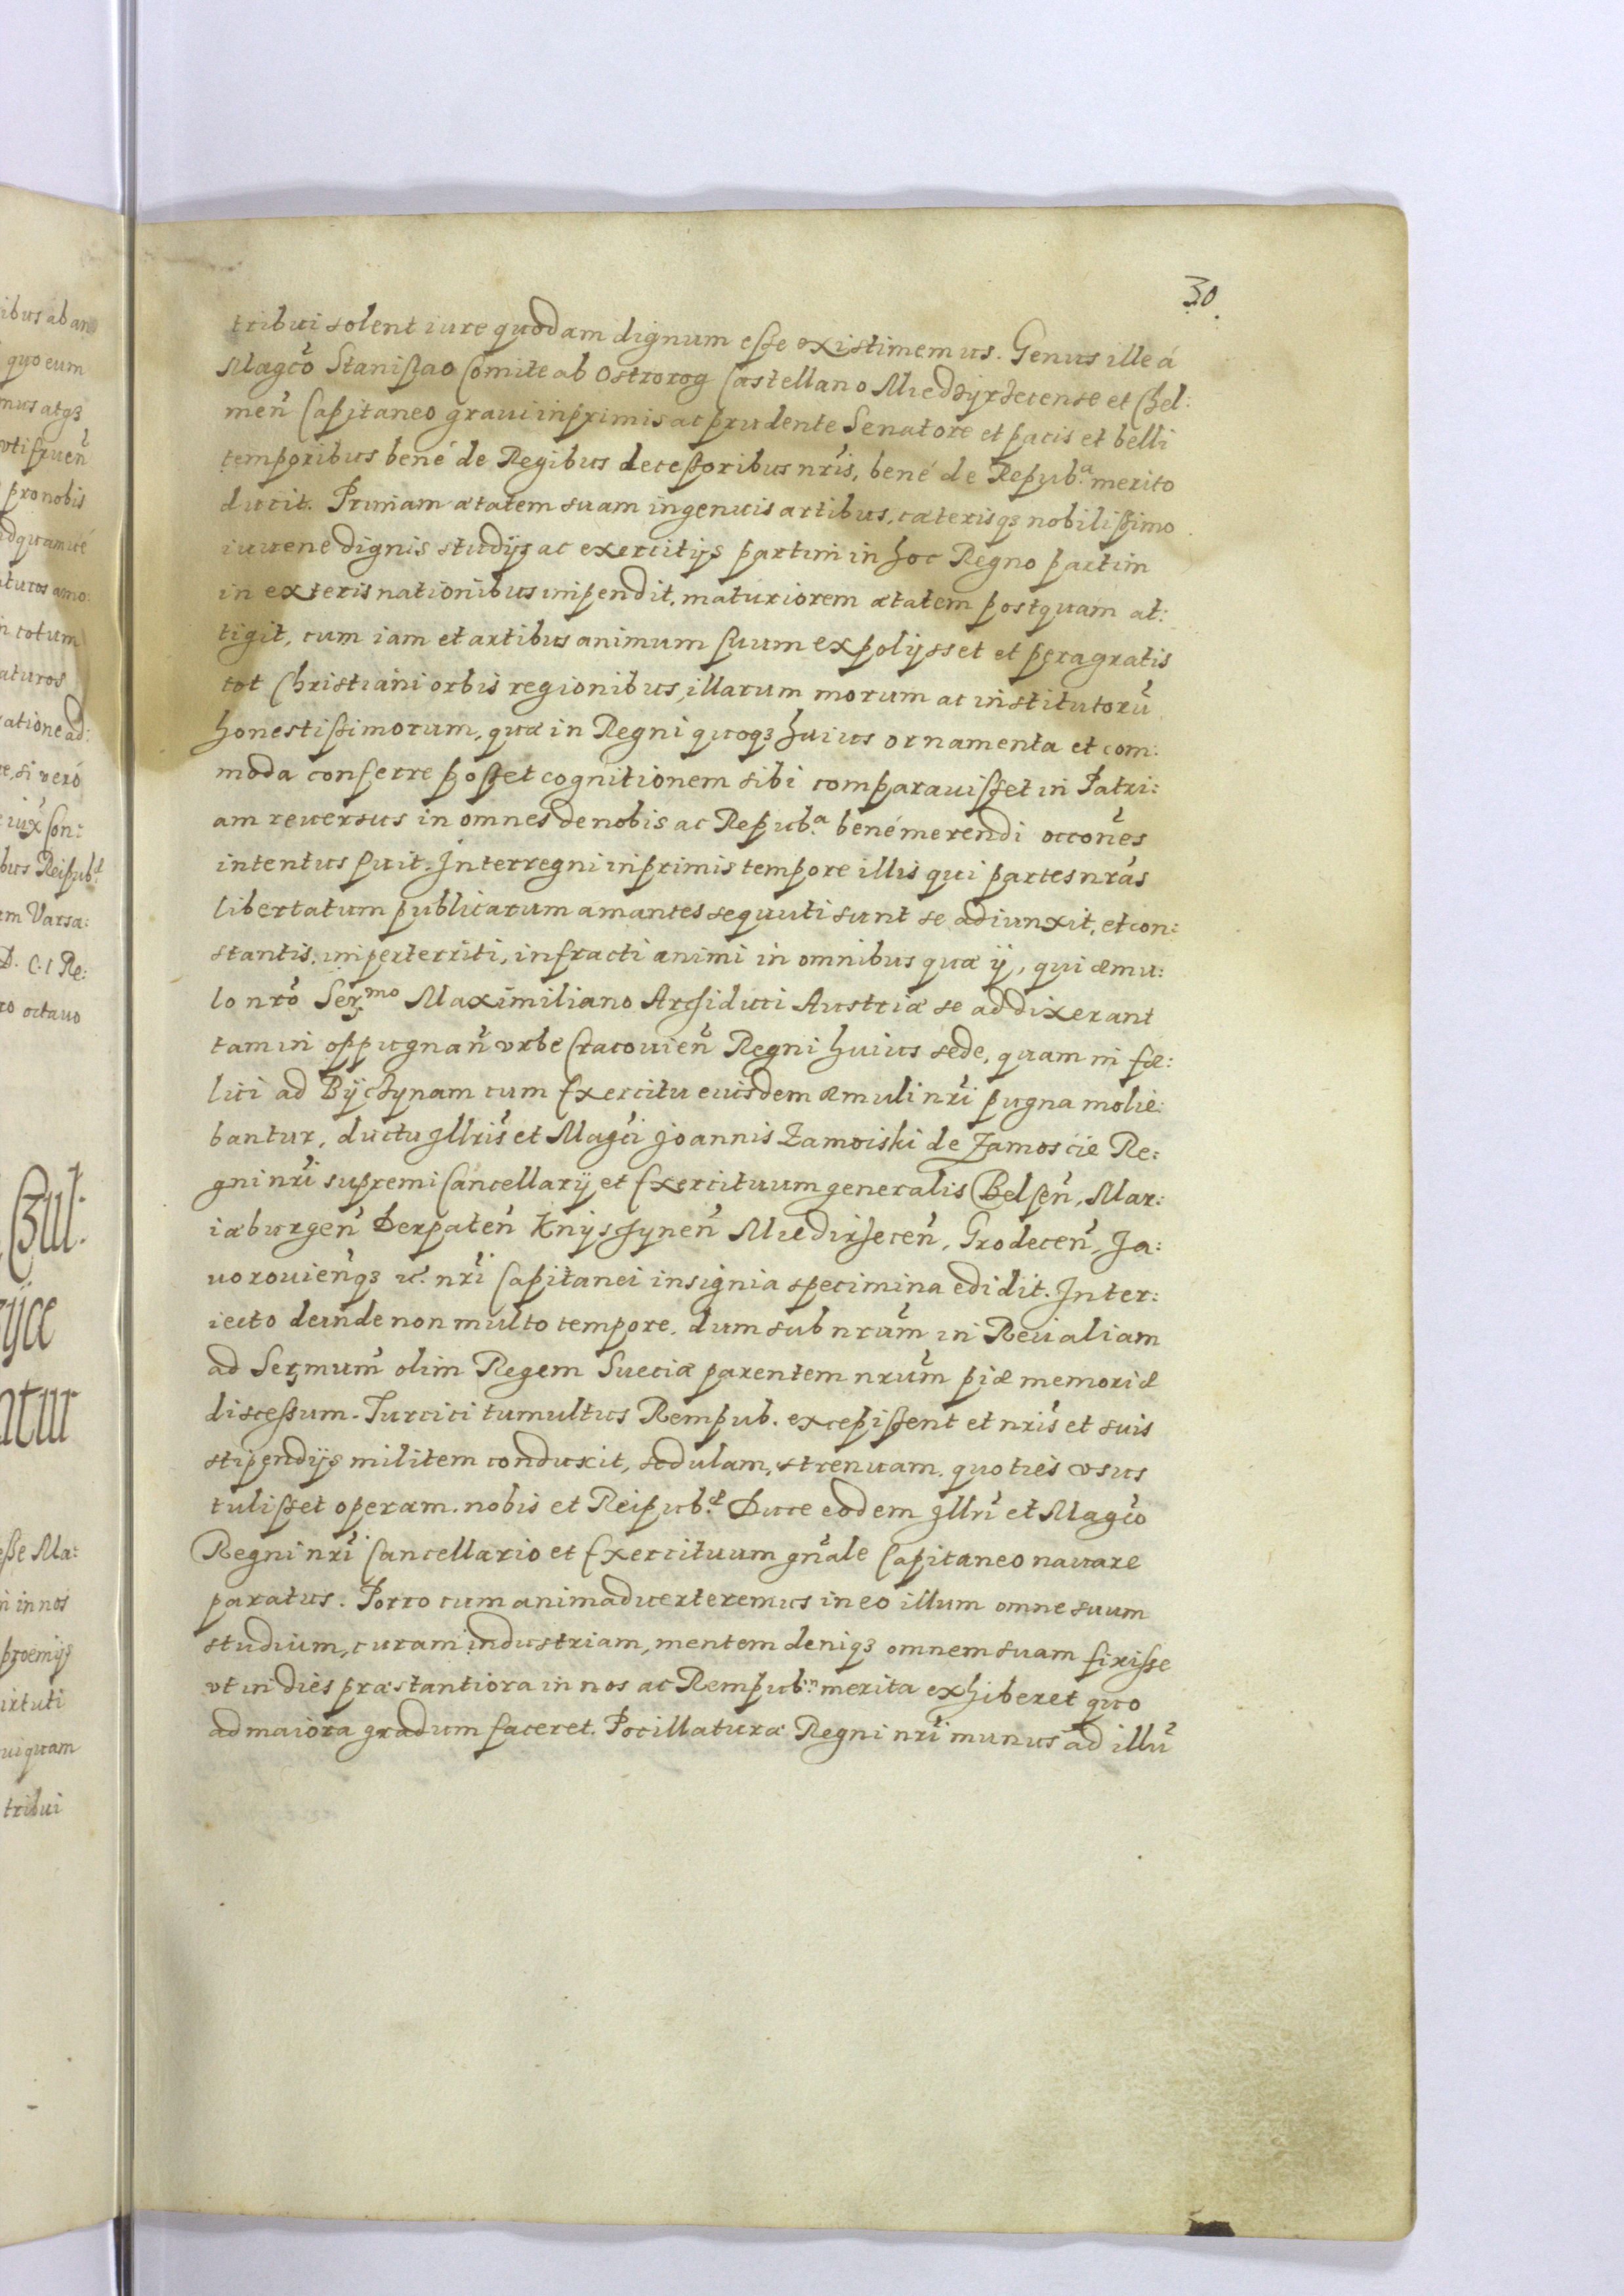 30.
tribui solent iure quodam dignum esse existimemus. Genus ille á
Magco Stanislao Comite ab Ostrorog Castellano Miedzyrzecense et Chel:
men Capitaneo graui inprimis ac prudente Senatore et pacis et belli
temporibus bené de Regibus decessoribus nris, bené de Repub.a merito
ducit. Primam ætatem suam ingenuis artibus, cæterisq3 nobilissimo
iuuene dignis studijs ac exercitijs partim in hoc Regno partim
in exteris nationibus impendit, maturiorem ætatem postquam at:
tigit, cum iam et artibus animum suum expolijsset et peragratis
tot Christiani orbis regionibus, illarum morum ac institutorū
honestissimorum, quæ in Regni quoq3 huius ornamenta et com:
moda conferre posset cognitionem sibi comparauisset in Patri:
am reuersus in omnes de nobis ac Repub.a bené merendi occones
intentus fuit. Interregni inprimis tempore illis qui partes nras
libertatum publicarum amantes sequuti sunt se adiunxit, et con:
stantis, imperterriti, infracti animi in omnibus quæ ij, qui æmu:
lo nro Ser.mo Maximiliano Archiduci Austriæ se addixerant
tam in oppugnan vrbe Cracouien Regni huius sede, quam in fæ:
lici ad Byczynam cum Exercitu eiusdem æmuli nri pugna molie:
bantur, ductu Illris et Magci Joannis Zamoiski de Zamoscie Re:
gni nri supremi Cancellarij et Exercituum generalis Belsen, Mar:
iæburgen Derpaten Knyschynen Miedirzecen, Grodecen, Ja:
uorouienq3 &c. nri Capitanei insignia specimina edidit. Inter:
iecto deinde non multo tempore, dum sub nrum in Reualiam
ad Sermum olim Regem Sueciæ parentem nrum piæ memoriæ
discessum. Turcici tumultus Rempub. excepissent et nris et suis
stipendijs militem conduxit, sedulam, strenuam, quoties vsus
tulisset operam. nobis et Reipub.æ Duce eodem Illri et Magco
Regni nri Cancellario et Exercituum gnale Capitaneo nauare
paratus. Porro cum animaduerteremus in eo illum omne suum
studium, curam industriam, mentem deniq3 omnem suam fixisse
vt in dies præstantiora in nos ac Rempub.m merita exhiberet quo
ad maiora gradum faceret. Pocillaturæ Regni nri munus ad illū